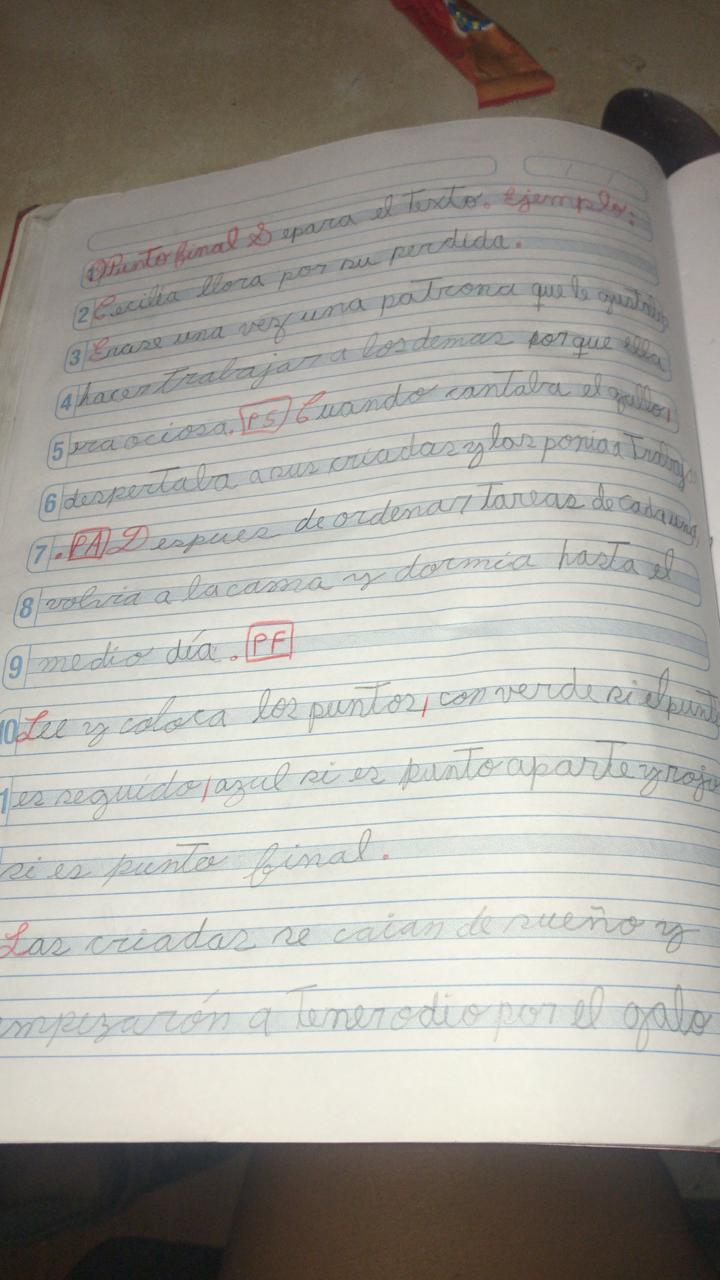 1) Punto final Separa el texto. Ejemplo:
2 Cecilia llora por su perdida.
3 Erase una vez una patrona que le gustaba
4 hacer trabajar a los demas porque ella
5 era ociosa. PS Cuando cantaba el gallo,
6 despertaba a sus criadas y las ponia a trabaja
7 . PA Despues de ordenar tareas de cada una,
8 volvia a la cama y dormia hasta el
9 medio día. PF
10 Lee y coloca los puntos, con verde si el punto
1 es seguido, azul si es punto aparte y rojo
si es punto final.
Las criadas se caian de sueño y
mpezarón a tener odio por el galo